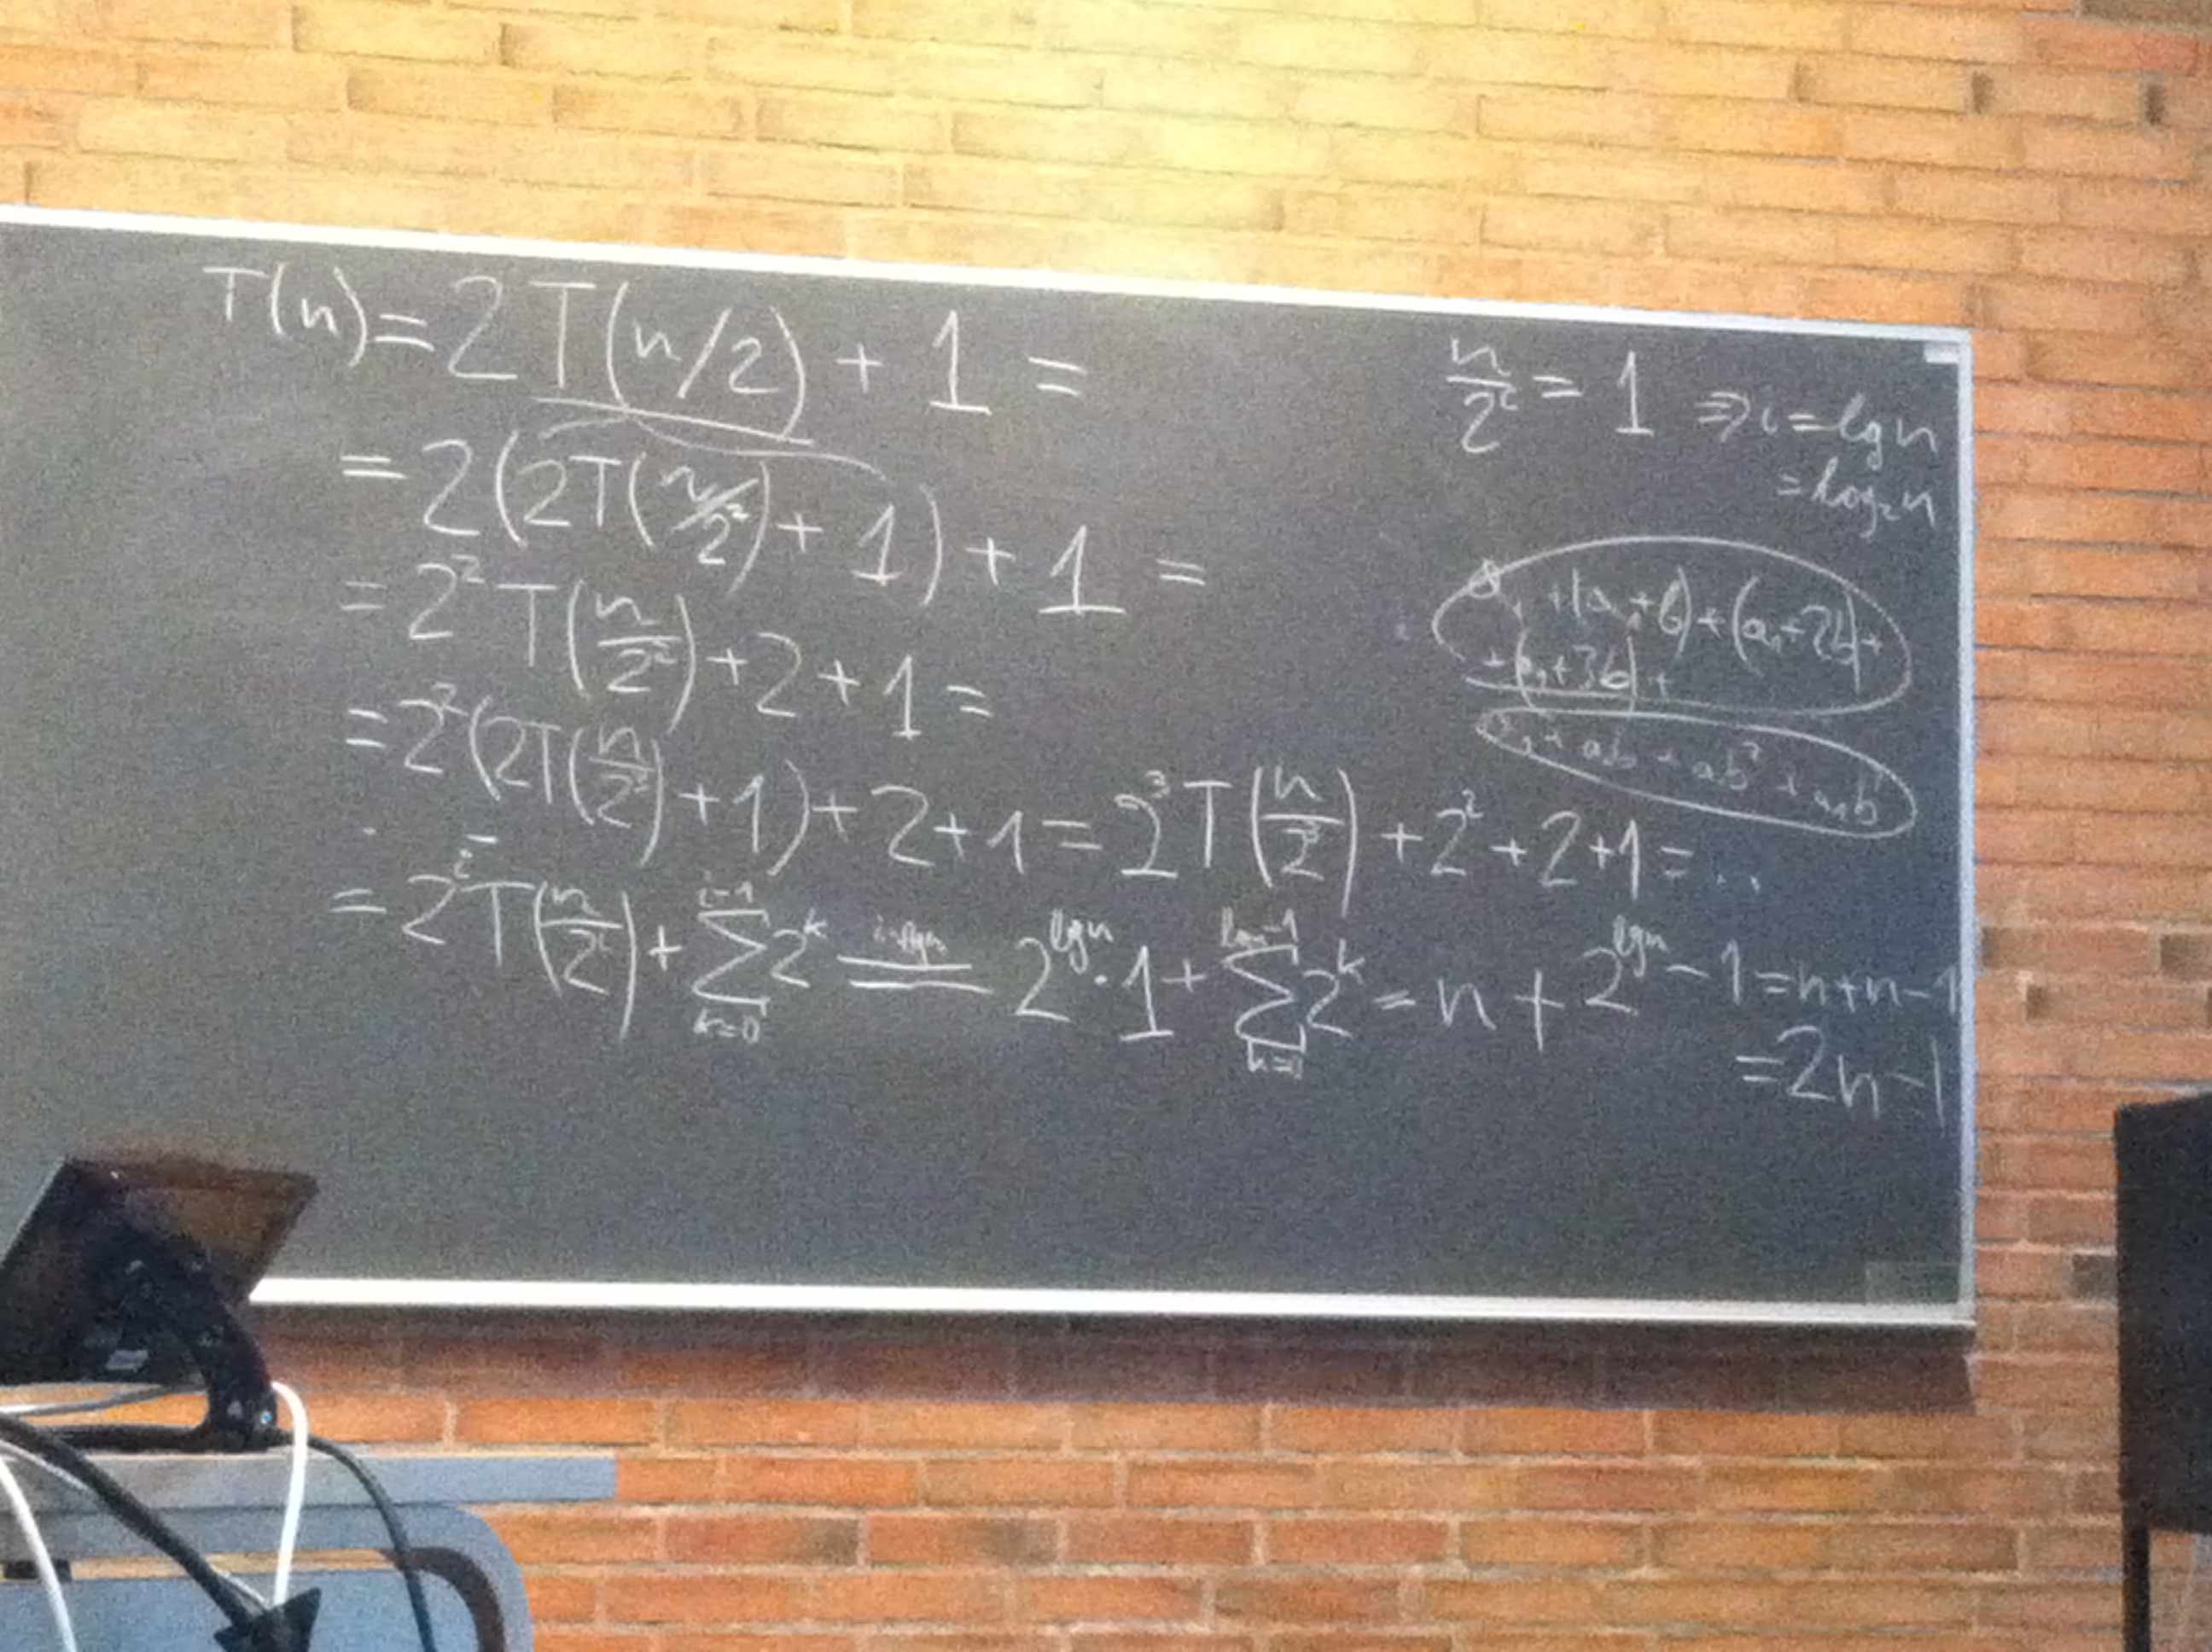 T(n) = 2T(n/2) + 1 =
= 2(2T(n/2²) + 1) + 1 =
= 2² T(n/2²) + 2 + 1 =
= 2²(2T(n/2³) + 1) + 2 + 1 = 2³ T(n/2³) + 2² + 2 + 1 = ..
= 2^i T(n/2^i) + ∑_{k=0}^{i-1} 2^k =(i=lgn)= 2^{lgn} · 1 + ∑_{k=0}^{lgn-1} 2^k = n + 2^{lgn} - 1 = n+n-1
= 2n-1
n/2^i = 1 ⇒ i = lg n
= log₂n
a₁ + (a₁+b) + (a₁+2b) +
+ (a₁+3b) +
a₁ + a₁b + a₁b² + a₁b³